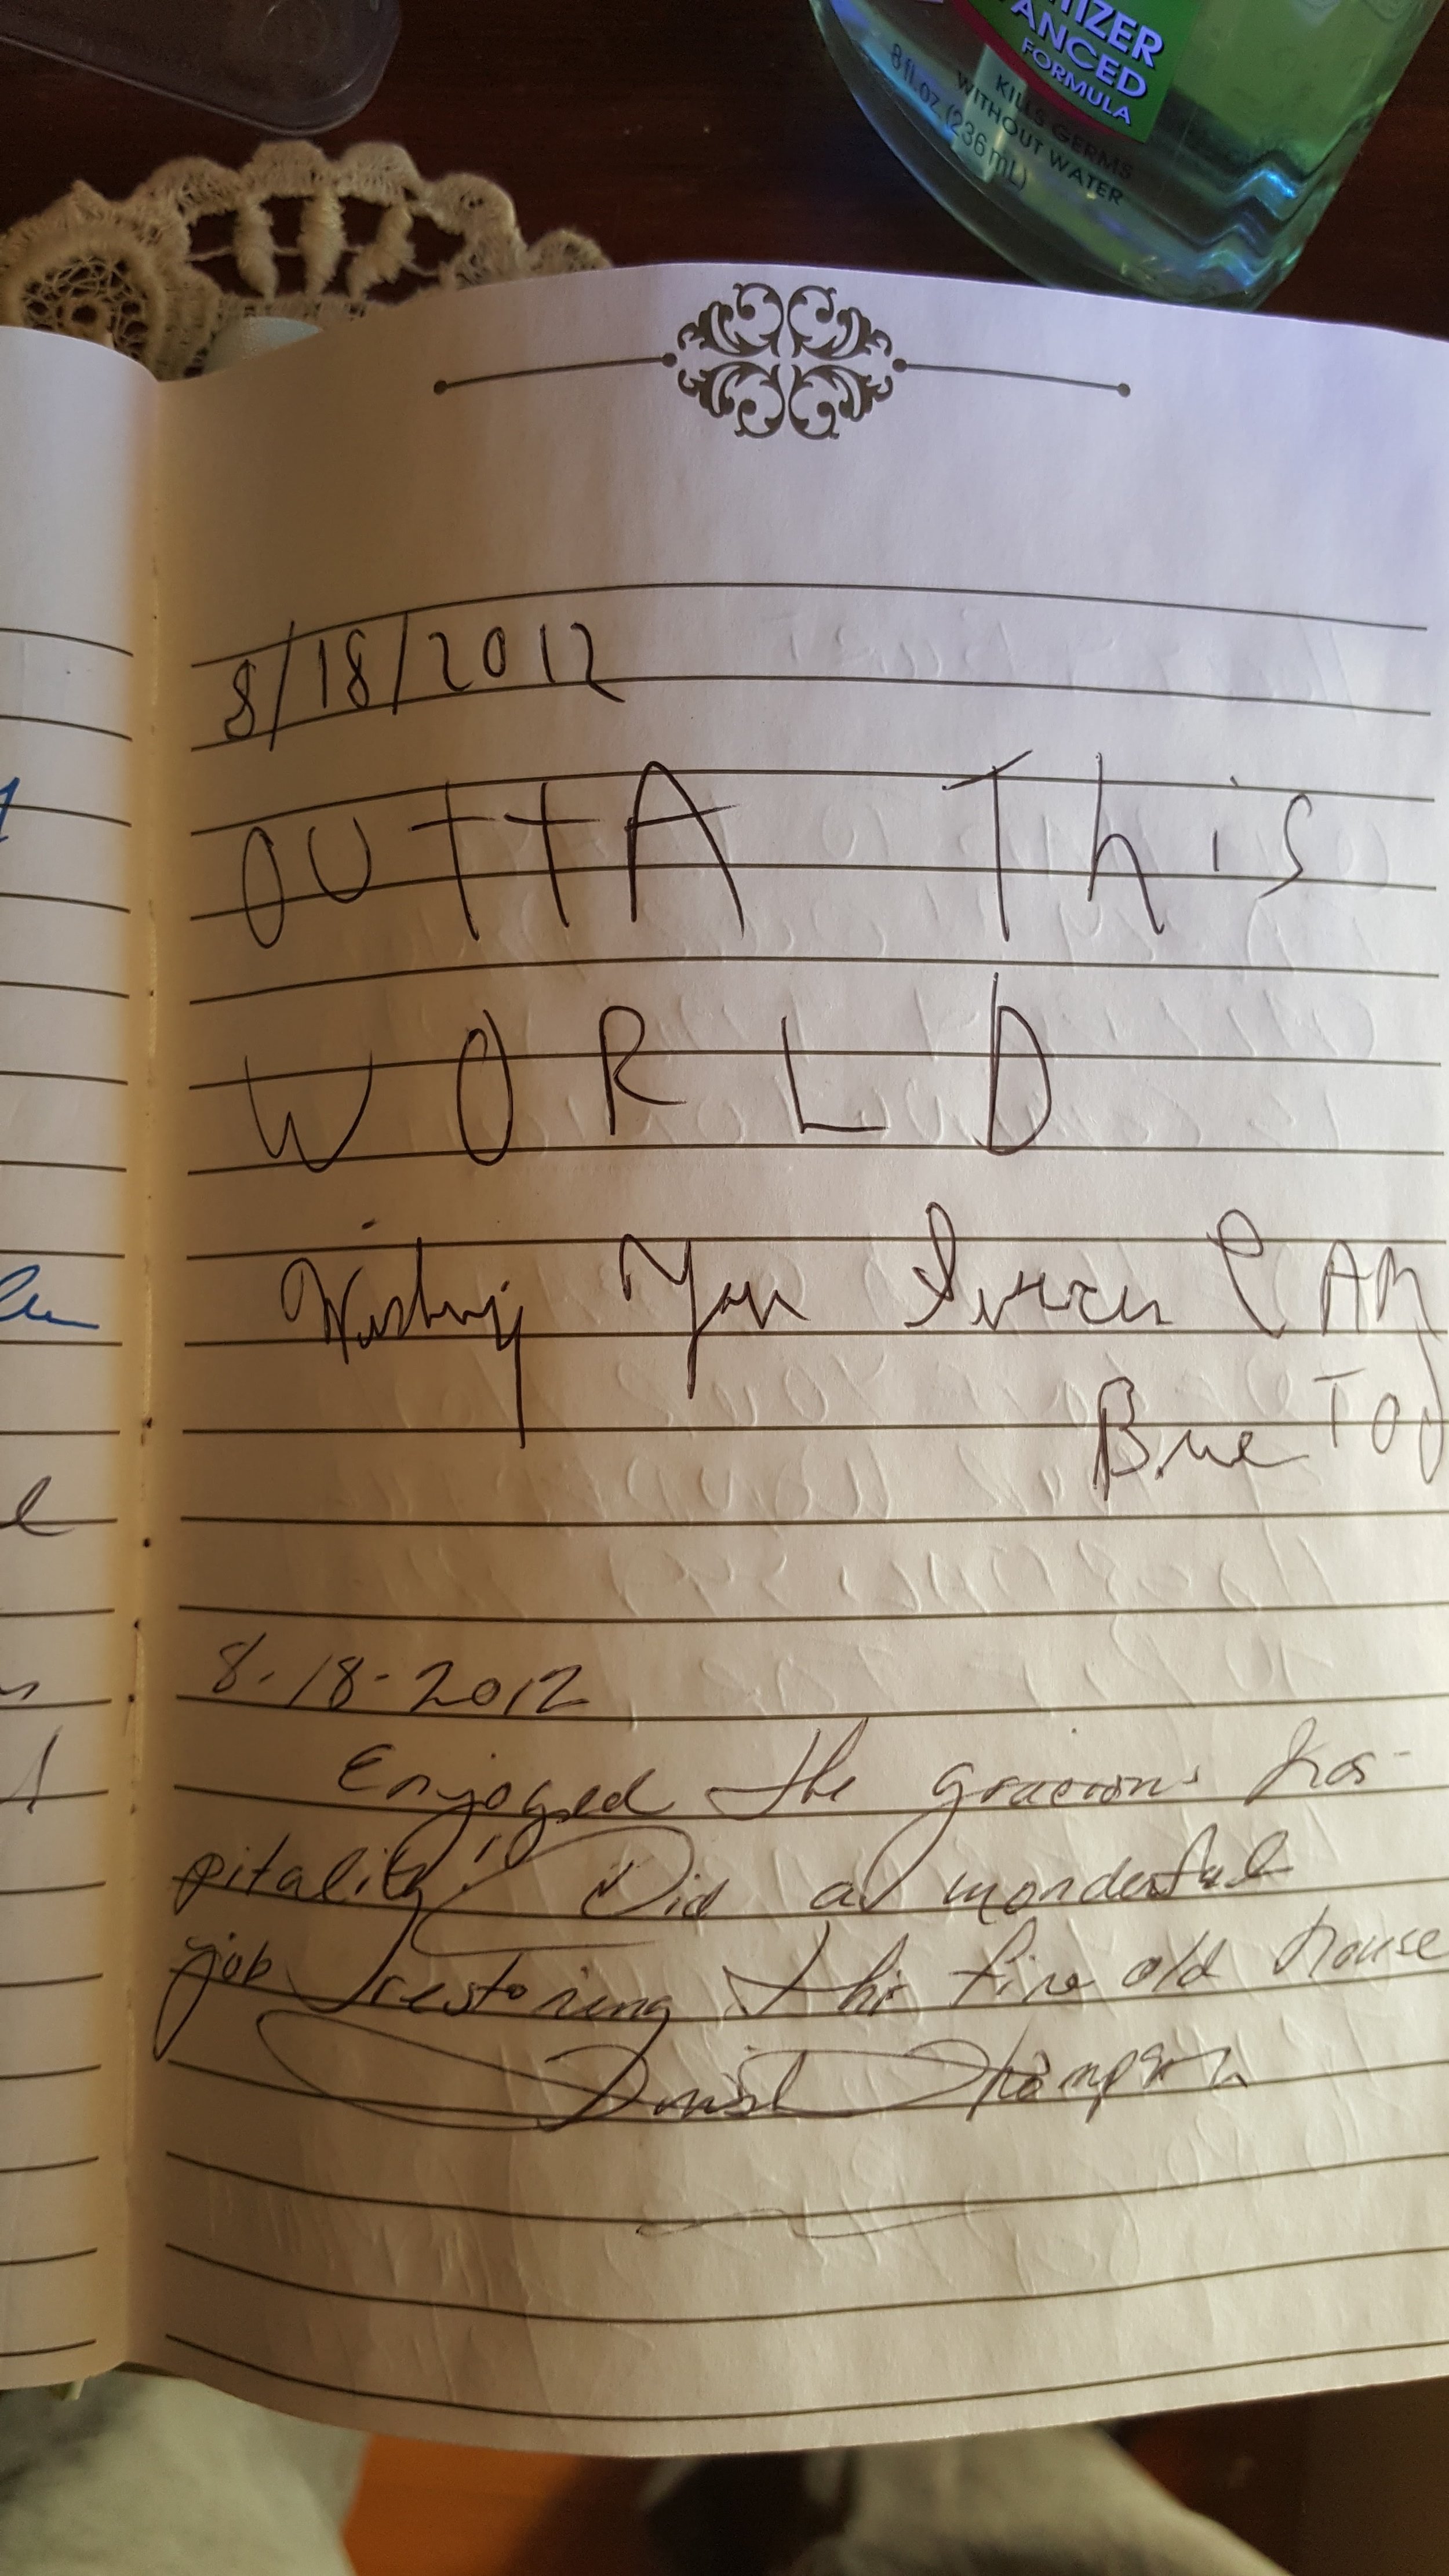 TIZER
ANCED
FORMULA
KILLS GERMS
WITHOUT WATER
8 fl. oz. (236 mL)
8/18/2012
OUttA This
WORLD
Wishing You
8-18-2012
Enjoyed the gracious hos-
pitality! Did a wonderful
job restoring this fine old house
Thompson